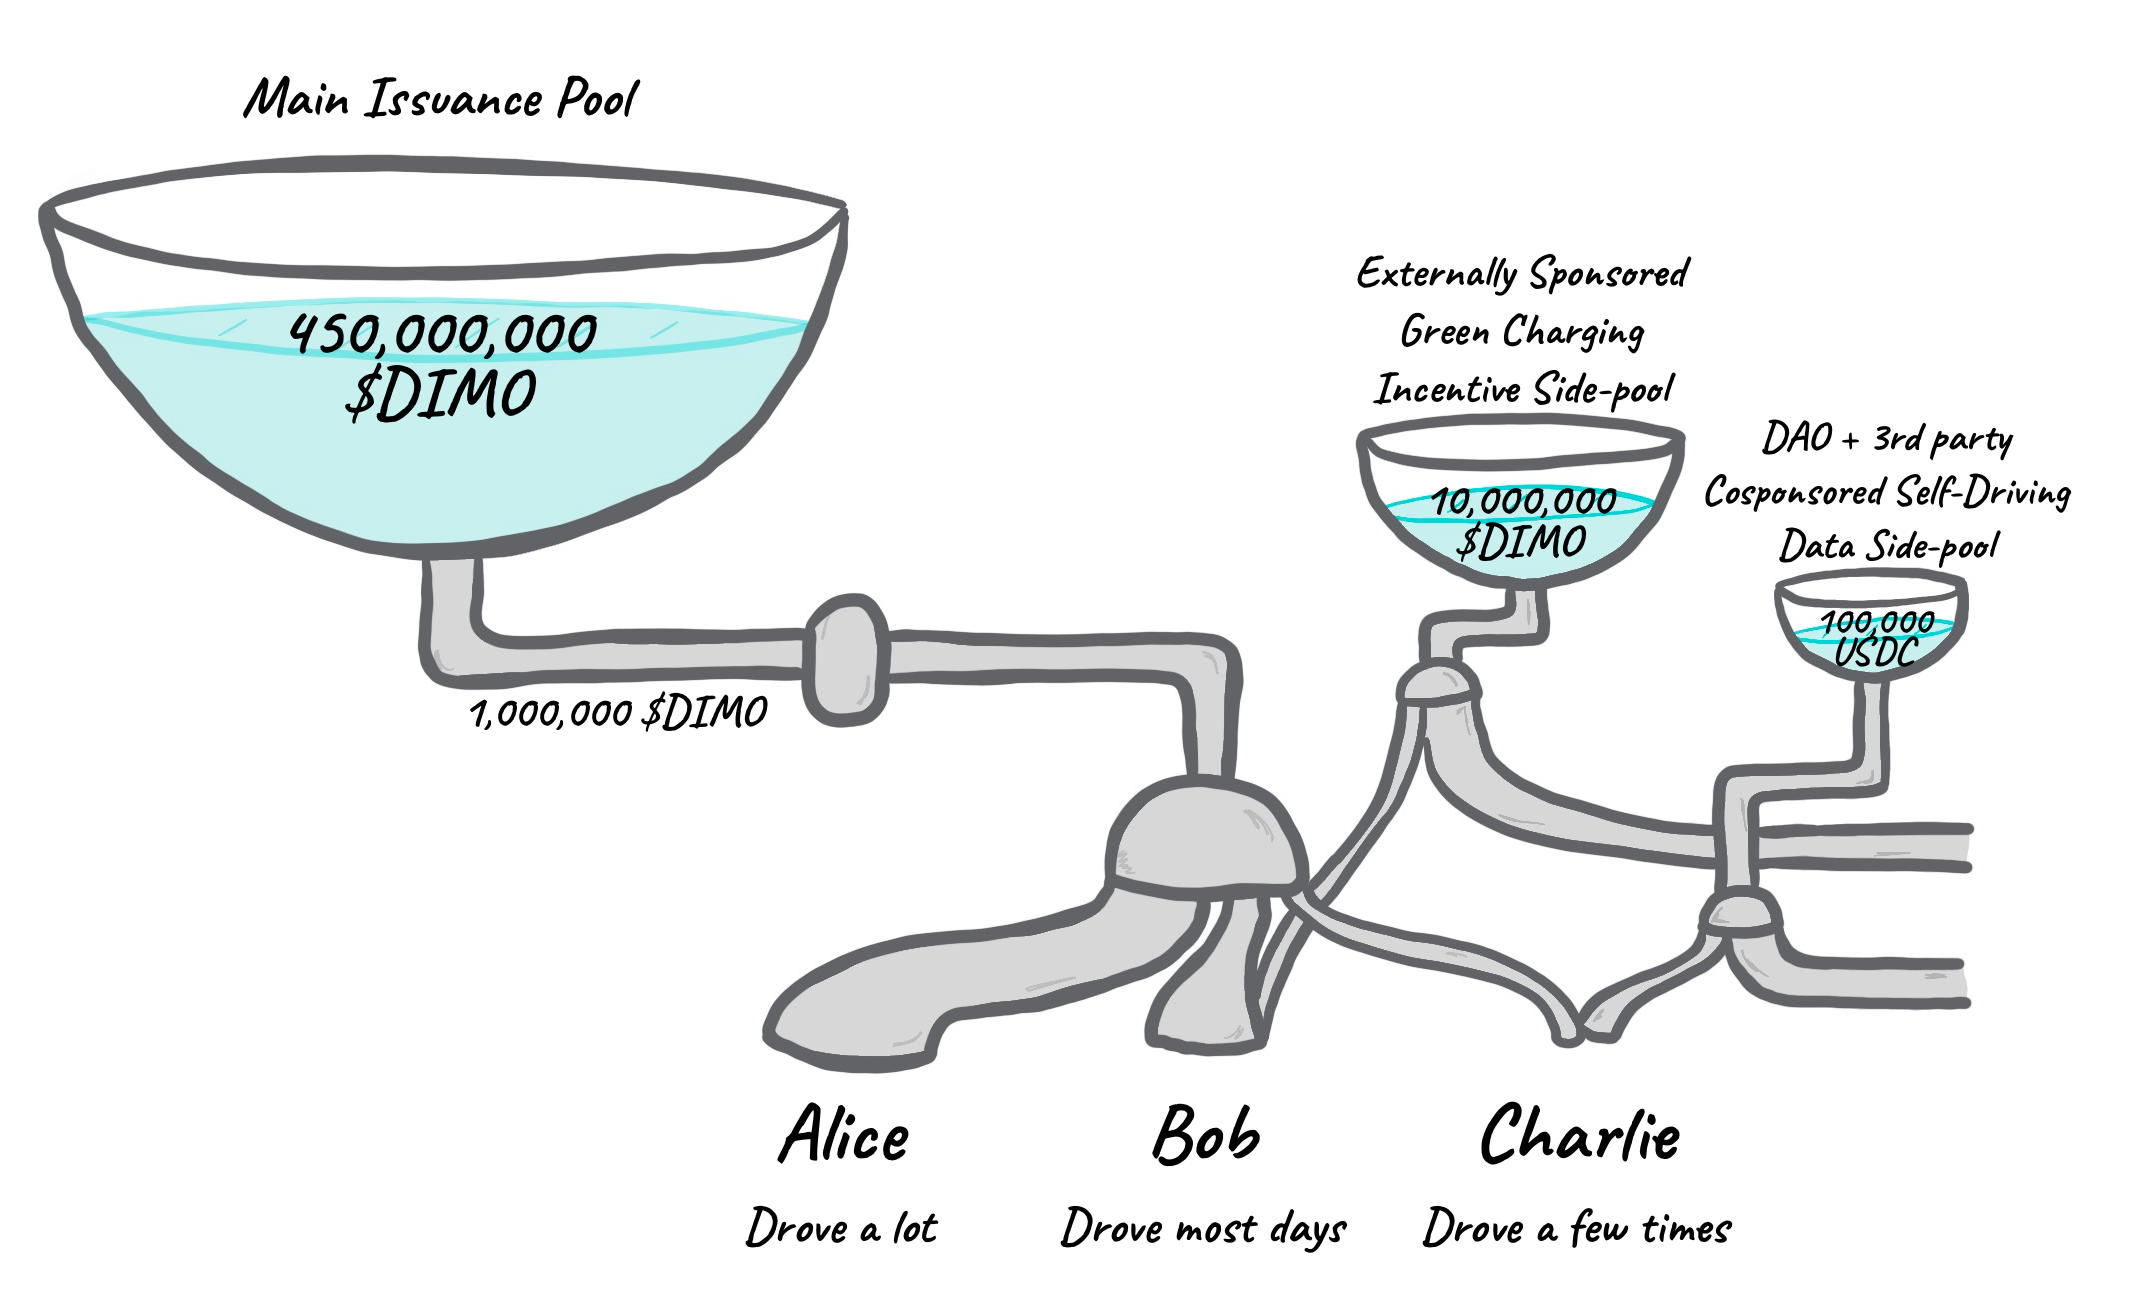 Main Issuance Pool
450,000,000
$DIMO
1,000,000 $DIMO
Externally Sponsored
Green Charging
Incentive Side-pool
10,000,000
$DIMO
DAO + 3rd party
Cosponsored Self-Driving
Data Side-pool
100,000
USDC
Alice
Drove a lot
Bob
Drove most days
Charlie
Drove a few times